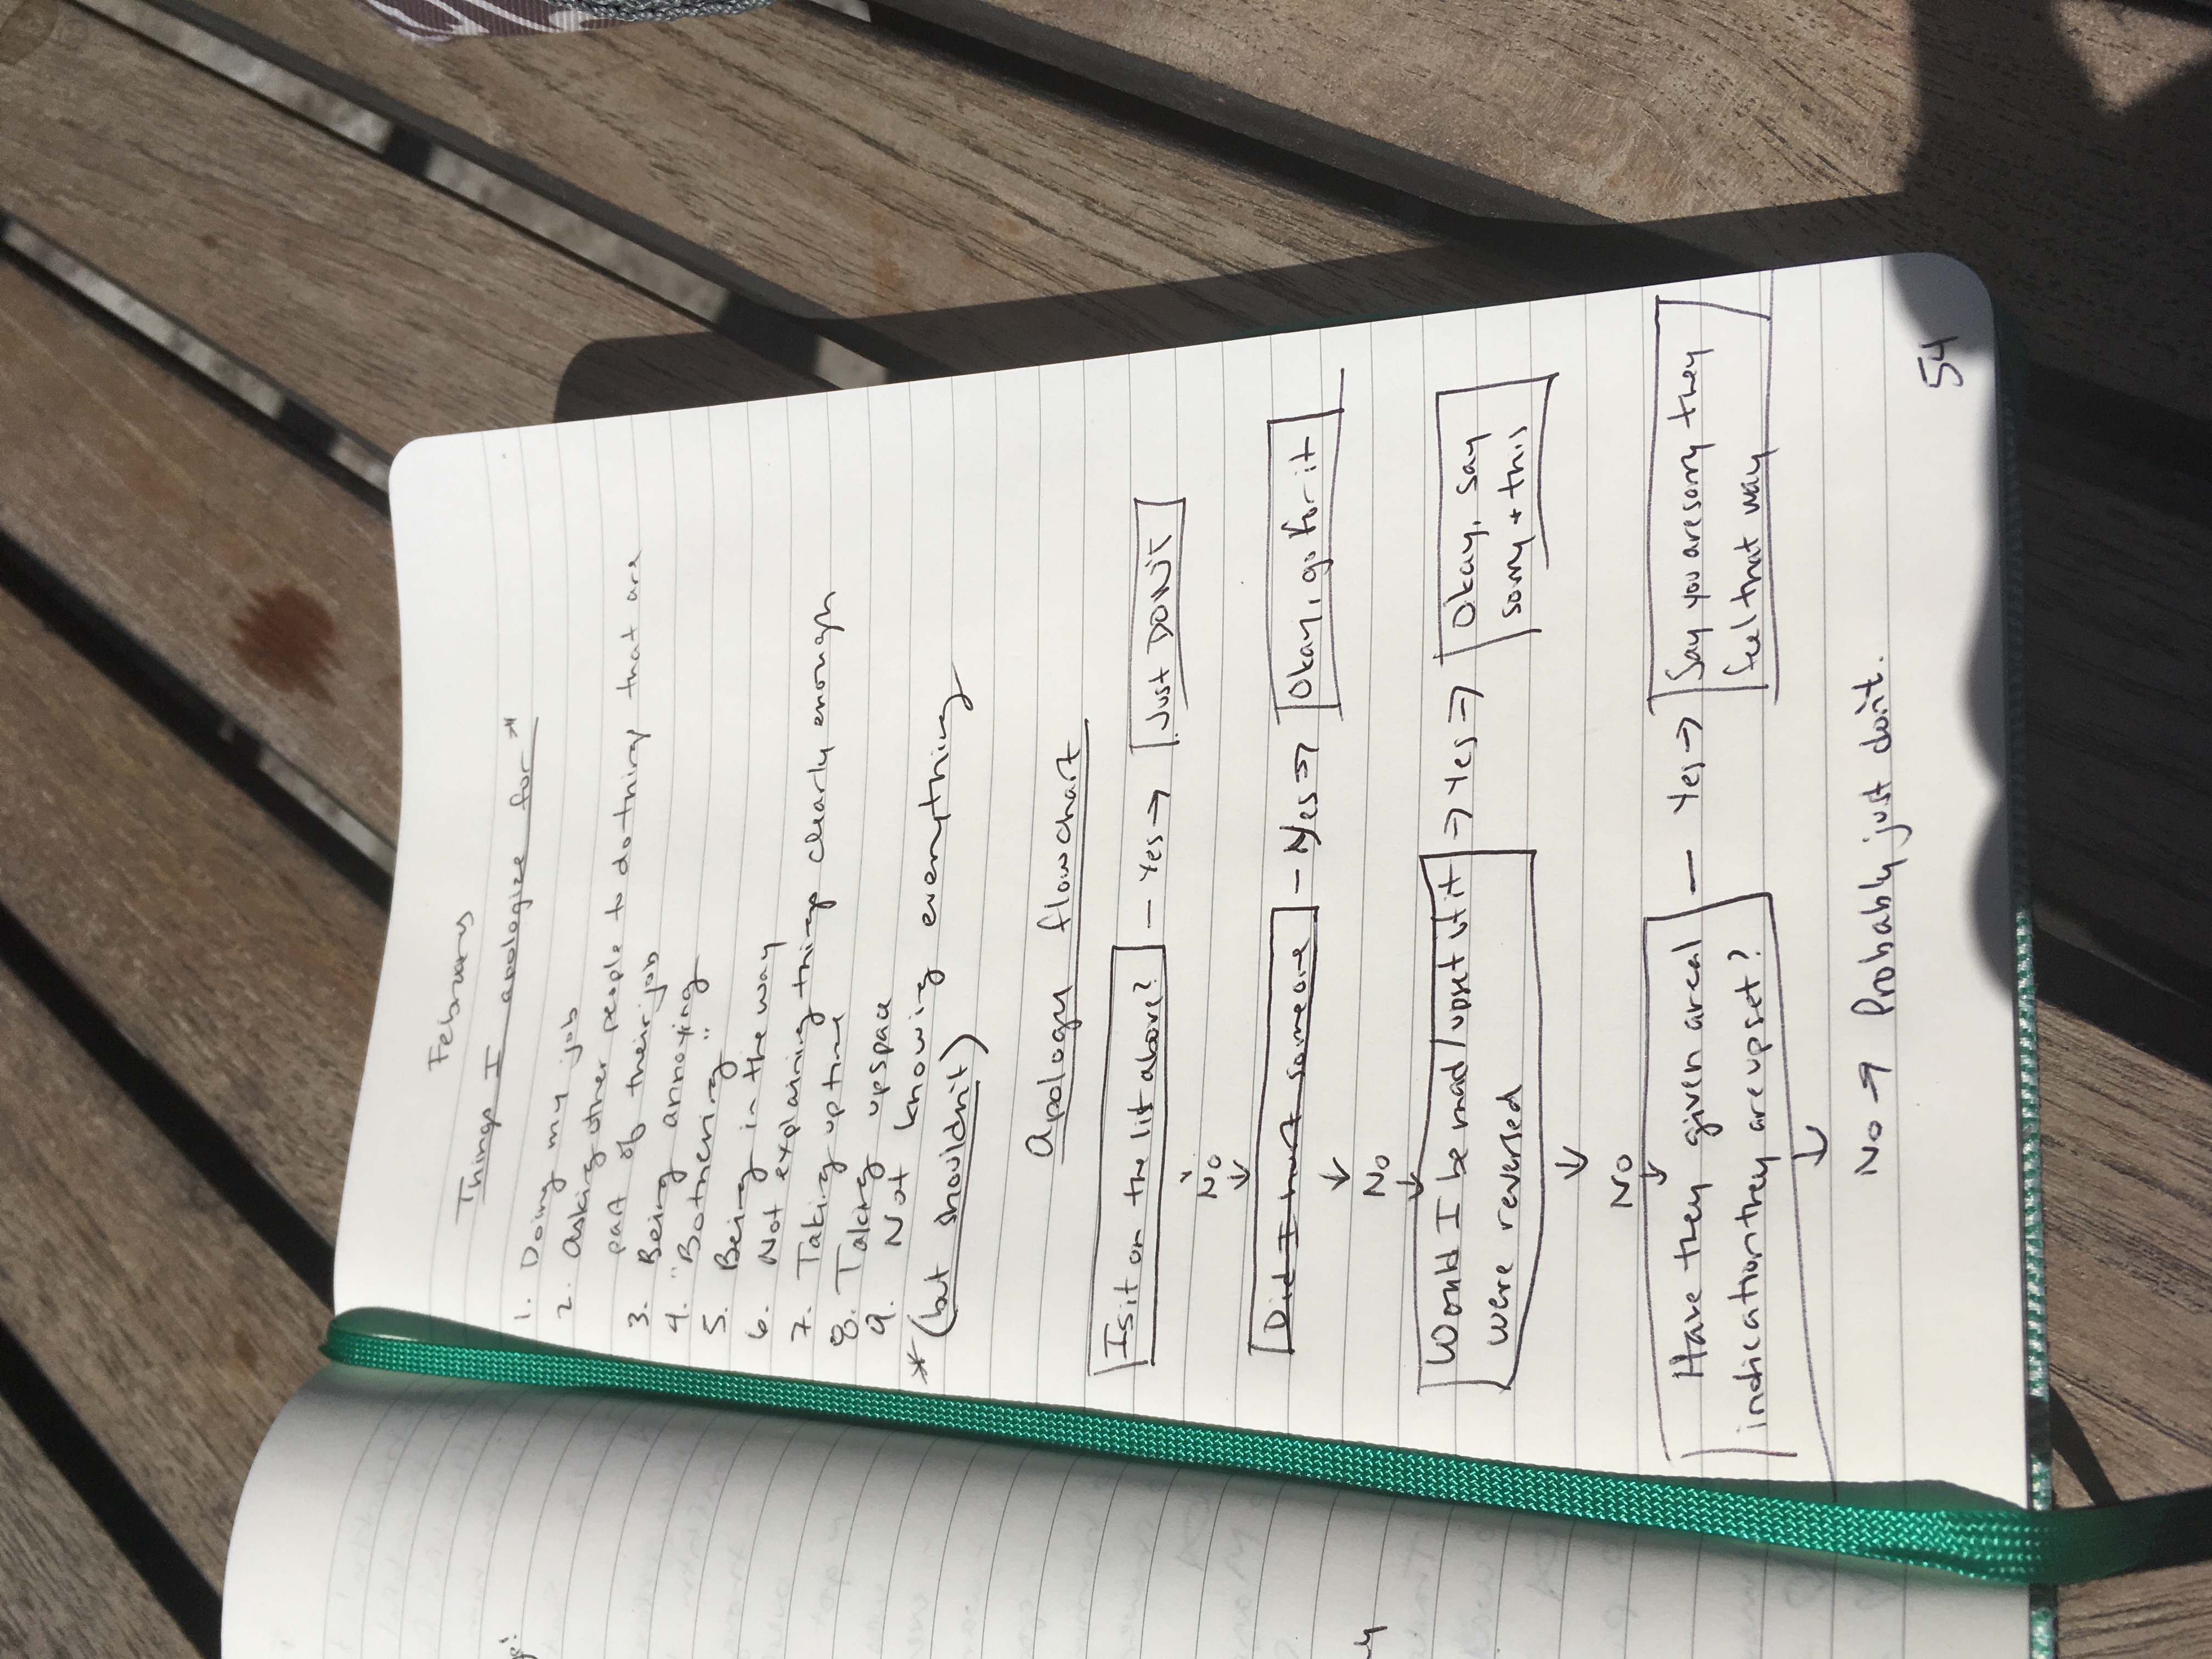 February
Things I apologize for *
1. Doing my job
2. asking other people to do things that are
part of their job
3. Being annoying
4. "Bothering"
5. Being in the way
6. Not explaining things clearly enough
7. Taking up time
8. Taking up space
9. Not knowing everything
* (but shouldn't)
Apology flowchart
Is it on the list above? — Yes → Just DON'T
No
↓
Did I hurt someone — Yes → Okay, go for it
↓
No
↓
Would I be mad/upset if it → Yes → Okay, say
were reversed sorry + this
↓
No
↓
Have they given a real — Yes → Say you are sorry they
indication they are upset? feel that way
↓
No → Probably just don't.
54